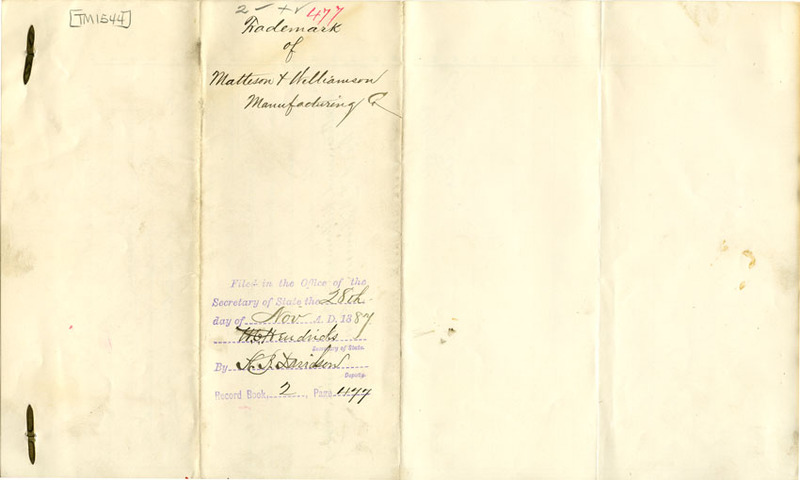 [TM1544]
477
Trademark
of
Matteson & Williamson
Manufacturing Co
Filed in the Office of the
Secretary of State the 28th
day of Nov A. D. 1887
W C Hendricks
Secretary of State.
By H. B. Davidson
Deputy.
Record Book, 2, Page 477